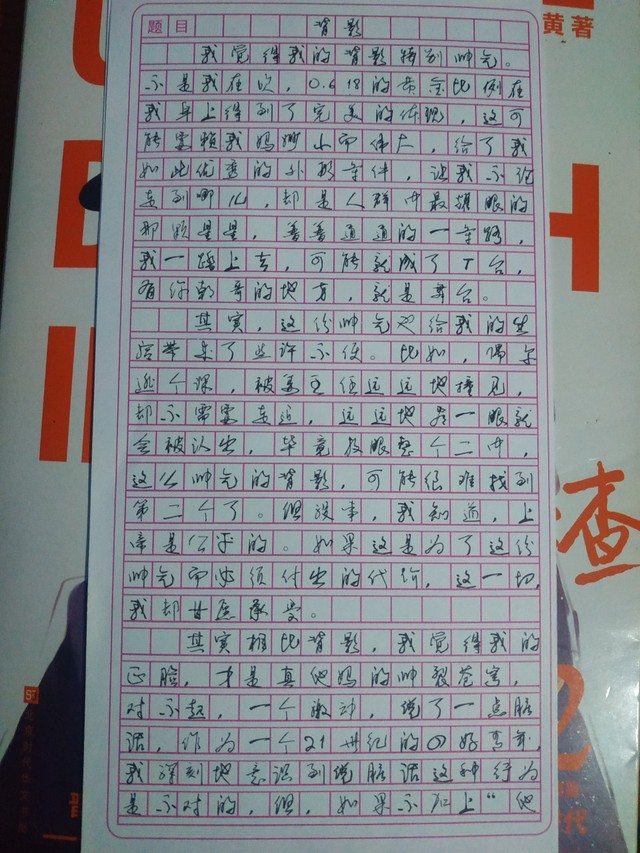 黄著
题目 背影
我觉得我的背影特别帅气。
不是我在吹，0.618的黄金比例在
我身上得到了完美的体现，这可
能要赖我妈渺小而伟大，给了我
如此优越的外形条件，让我不论
走到哪儿，却是人群中最耀眼的
那颗星星，普普通通的一条路，
我一踏上去，可能就成了T台，
有你朝哥的地方，就是舞台。
其实，这份帅气也给我的生
活带来了些许不便。比如，偶尔
逃个课，被姜主任远远地撞见，
却不需要走近，远远地看一眼就
会被认出，毕竟放眼整个二中，
这么帅气的背影，可能很难找到
第二个了。但没事，我知道，上
帝是公平的。如果这是为了这份
帅气而必须付出的代价，这一切，
我却甘愿承受。
其实相比背影，我觉得我的
正脸，才是真他妈的帅裂苍穹，
对不起，一个激动，说了一点脏
话，作为一个21世纪的四好青年，
我深刻地意识到说脏话这种行为
是不对的，但，如果不加上“他
查
2
时代